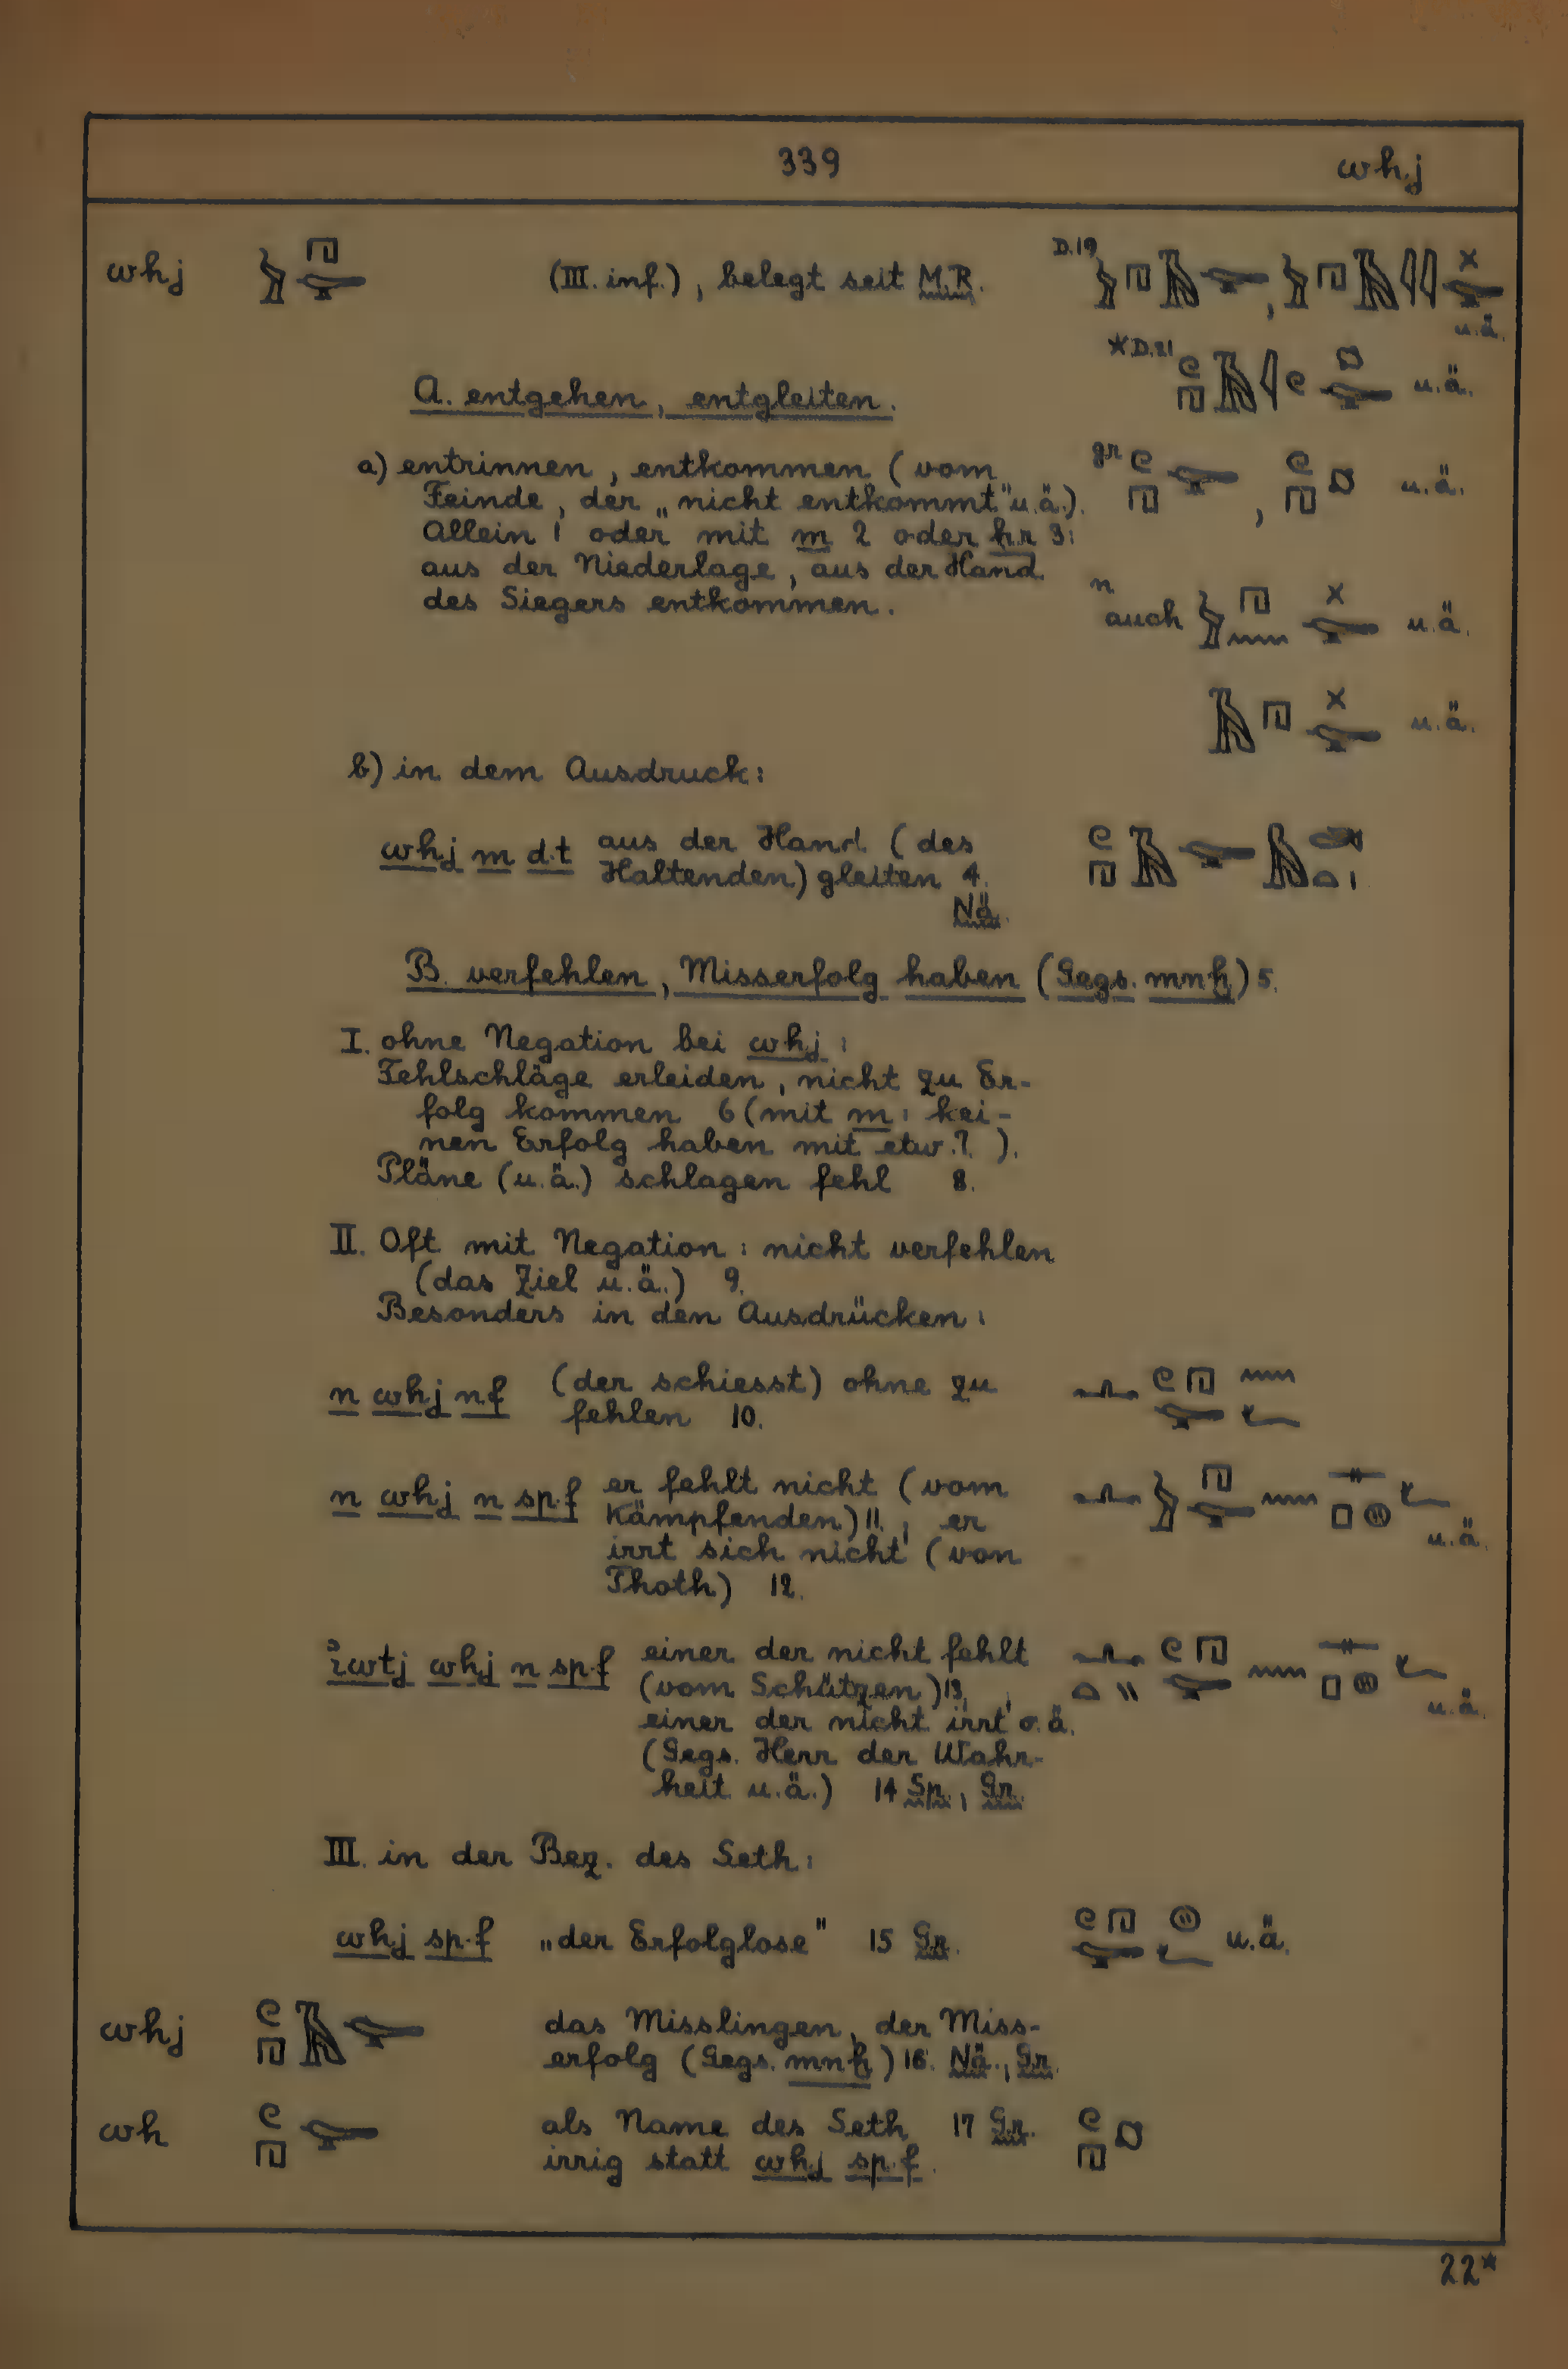 339 whj
whj (III. inf.), belegt seit M.R. D.19 u.ä.
*D.21 u.ä.
A. entgehen, entgleiten.
a) entrinnen, entkommen (vom gr , u.ä.
Feinde, der „nicht entkommt" u.ä.).
Allein 1 oder mit m 2 oder ḥr 3:
aus der Niederlage, aus der Hand n
des Siegers entkommen. auch u.ä.
u.ä.
b) in dem Ausdruck:
whj m d.t aus der Hand (des
Haltenden) gleiten 4.
Nä.
B. verfehlen, Misserfolg haben (Gegs. mnḫ) 5.
I. ohne Negation bei whj:
Fehlschläge erleiden, nicht zu Er-
folg kommen 6 (mit m: kei-
nen Erfolg haben mit etw. 7 ).
Pläne (u.ä.) schlagen fehl 8.
II. Oft mit Negation: nicht verfehlen
(das Ziel u.ä.) 9.
Besonders in den Ausdrücken:
n whj n.f (der schiesst) ohne zu
fehlen 10.
n whj n sp.f er fehlt nicht (vom
Kämpfenden) 11; er
irrt sich nicht (von u.ä.
Thoth) 12.
iwtj whj n sp.f einer der nicht fehlt
(vom Schützen) 13,
einer der nicht irrt o.ä. u.ä.
(Gegs. Herr der Wahr-
heit u.ä.) 14 Sp., Gr.
III. in der Bez. des Seth:
whj sp.f „der Erfolglose" 15 Gr. u.ä.
whj das Misslingen, der Miss-
erfolg (Gegs. mnḫ) 16. Nä., Gr.
wh als Name des Seth 17 Gr.
irrig statt whj sp.f.
22*